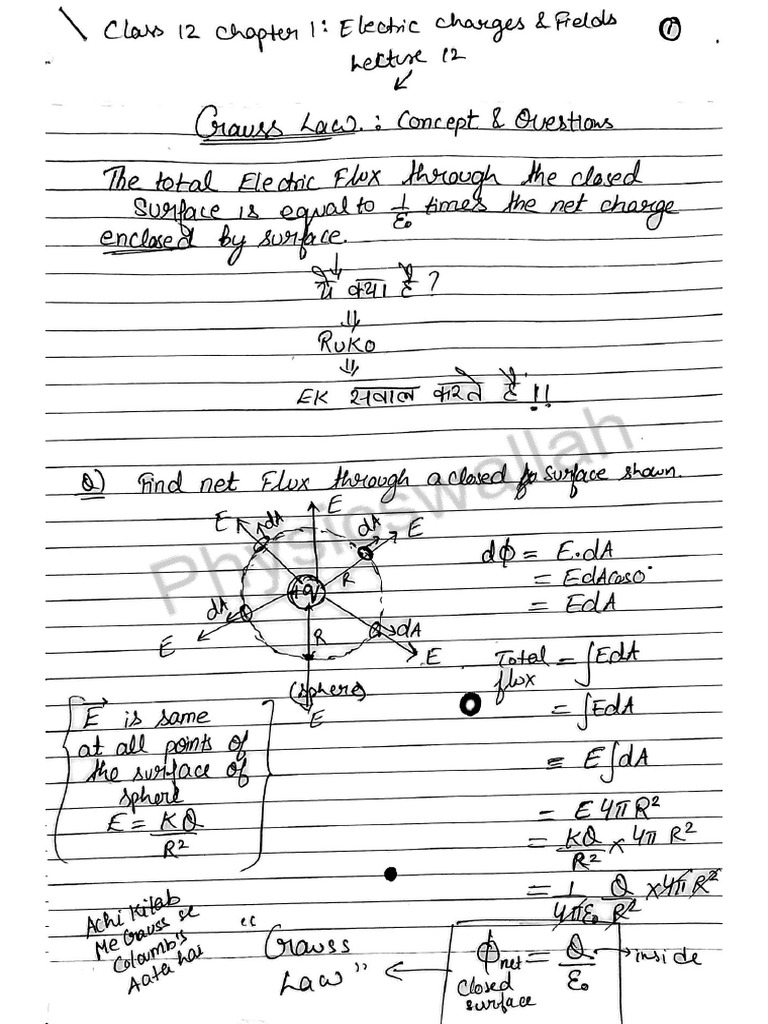 Class 12 Chapter 1: Electric charges & Fields
①
Lecture 12
Gauss Law.: Concept & Questions
The total Electric Flux through the closed
Surface is equal to 1/ε0 times the net charge
enclosed by surface.
ये क्या है ?
RUKO
EK सवाल करते हैं !!
Q) Find net Flux through a closed surface shown.
E
E dA
dA E
dA
E
+q
R
R
dA
E
(sphere)
E
dϕ = E.dA
= EdAcos0°
= EdA
Total flux = ∫EdA
= ∫EdA
= E∫dA
= E 4πR²
= KQ/R² × 4πR²
= 1/4πε0 Q/R² × 4πR²
E⃗ is same
at all points of
the surface of
sphere
E = KQ/R²
Achi Kitab
Me Gauss se
Columb's
Aata hai
"Gauss
Law"
ϕnet = Q/ε0 → inside
closed
surface
Physicswallah